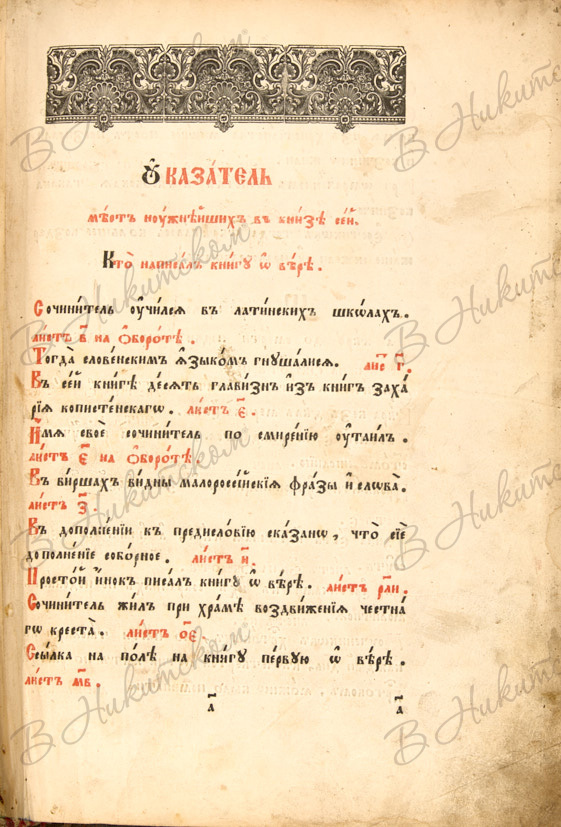 Оу҆КАЗА́ТЕЛЬ
мѣ́стъ ноужнѣ́йшихъ въ кни́зѣ се́й.
Кто̀ написа́лъ кни́гу ѡ҆ вѣ́рѣ .
Сочини́тель ᲂу҆чи́лся въ лати́нскихъ шко́лахъ .
ли́стъ в҃ на ѻ҆боро́тѣ .
Тогда̀ слове́нскимъ ѧ҆зы́комъ гнуша́лися . ли́с г҃ .
Въ се́й кни́гѣ де́сять глави́знъ и҆зъ кни́гъ заха́
рїѧ копи́стенскагѡ . ли́стъ є҃ .
И҆́мя своѐ сочини́тель по смире́нїю ᲂу҆таи́лъ .
ли́стъ є҃ на ѻ҆боро́тѣ .
Въ ви́ршахъ ви́дны малоросси́йскїѧ фра́зы и҆ слѡва̀ .
ли́стъ з҃ .
Въ дополне́нїи къ предисло́вїю ска́занѡ , что̀ сїѐ
дополне́нїе собо́рное . ли́стъ и҃ .
Просто́й и҆́нокъ писа́лъ кни́гу ѡ҆ вѣ́рѣ . ли́стъ рл҃и .
Сочини́тель жи́лъ при хра́мѣ воздви́женїѧ честна́
гѡ креста̀ . ли́стъ ѻ҃є .
Ссы́лка на по́лѣ на кни́гу пе́рвую ѡ҆ вѣ́рѣ .
ли́стъ м҃в .
а҃ а҃
В. Никитском